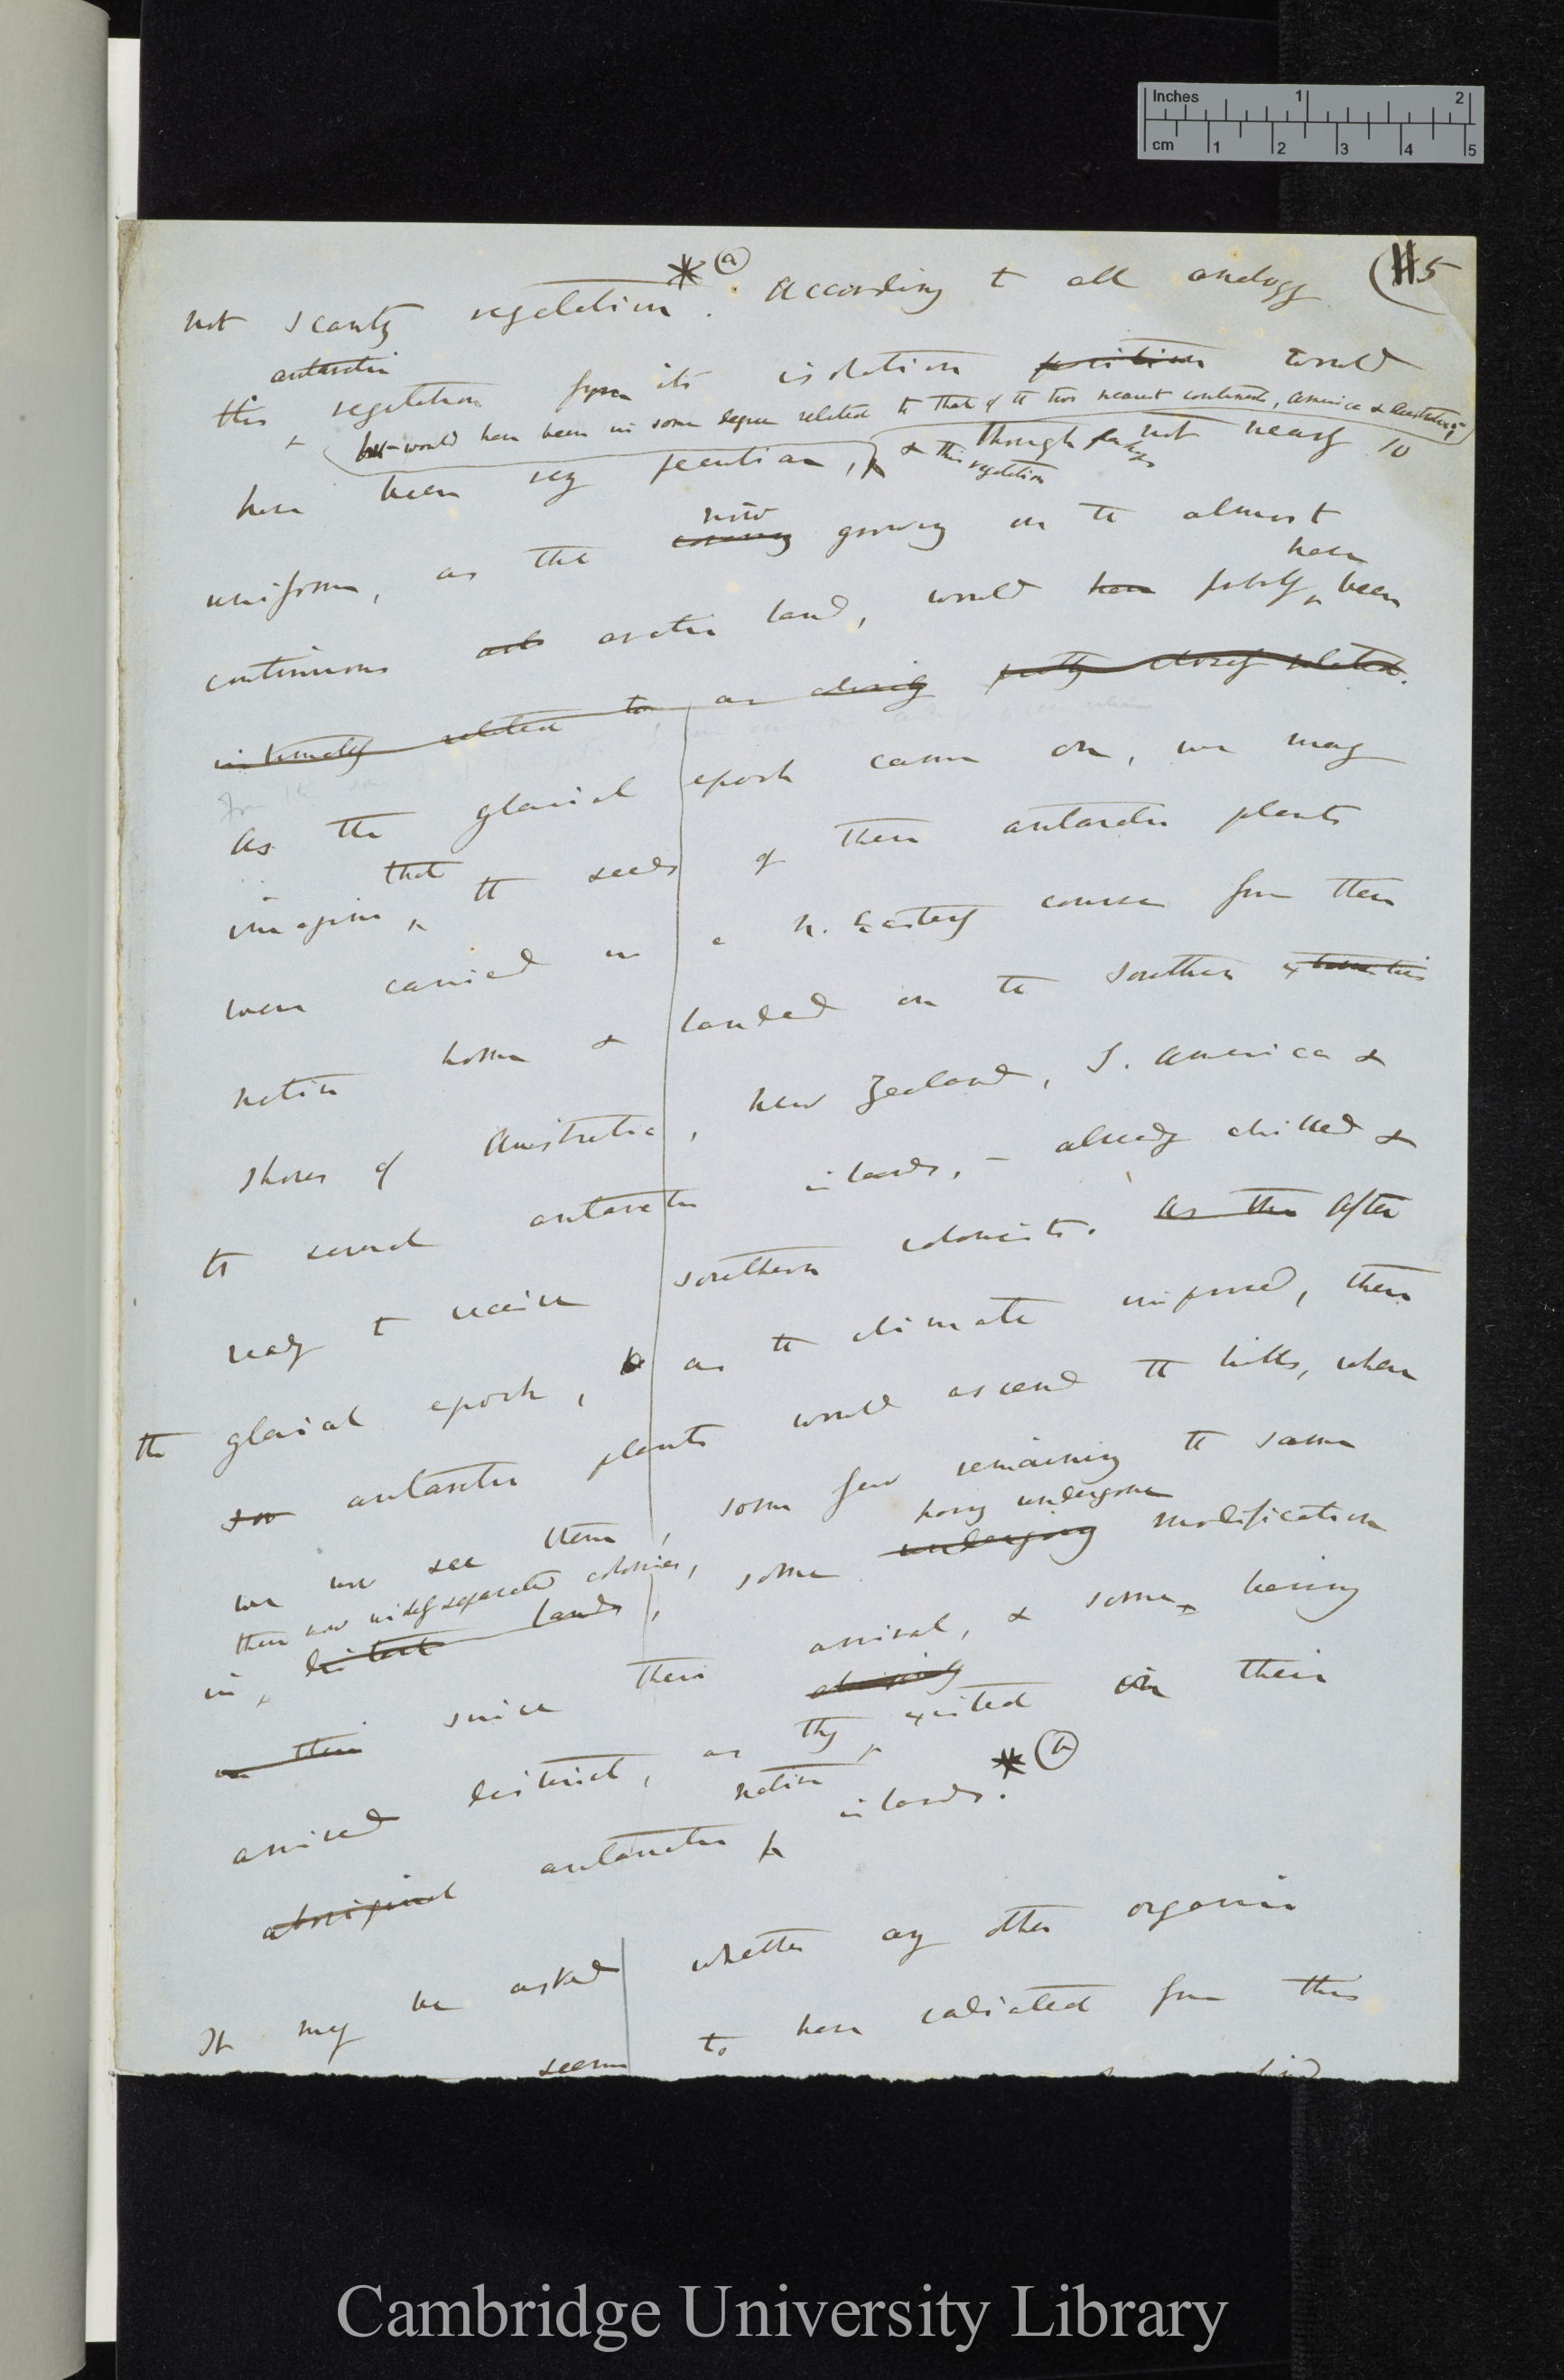 Inches 1 2
cm 1 2 3 4 5
(H5
not scanty vegetation *(a). According to all analogy
antarctic
this vegetation from its isolation position would
but would have been in some degree related to that of the two nearest continents, America & Australia;
have been very peculiar, & this vegetation though not nearly so
now
uniform, as the growing on the almost
have
continuous arctic land, would have probably been
intimately related to, as closely pretty closely related.
As the glacial epoch came on, we may
that
imagine the seeds of these antarctic plants
were carried in a N. Easterly course from their
native home & landed on the southern extremities
shores of Australia, New Zealand, S. America &
the several antarctic islands, – already chilled &
ready to receive southern colonists. As the After
the glacial epoch, as the climate improved, these
antarctic plants would ascend the hills, where
we now see them, some few remaining the same
having undergone
these now widely separated colonies,
in distant lands, some undergoing modification
in their since their arrival, & some having
arrived district, as they existed in their
native
aboriginal antarctic islands. *(b)
It may be asked whether any other organic
seem to have radiated from this
Cambridge University Library